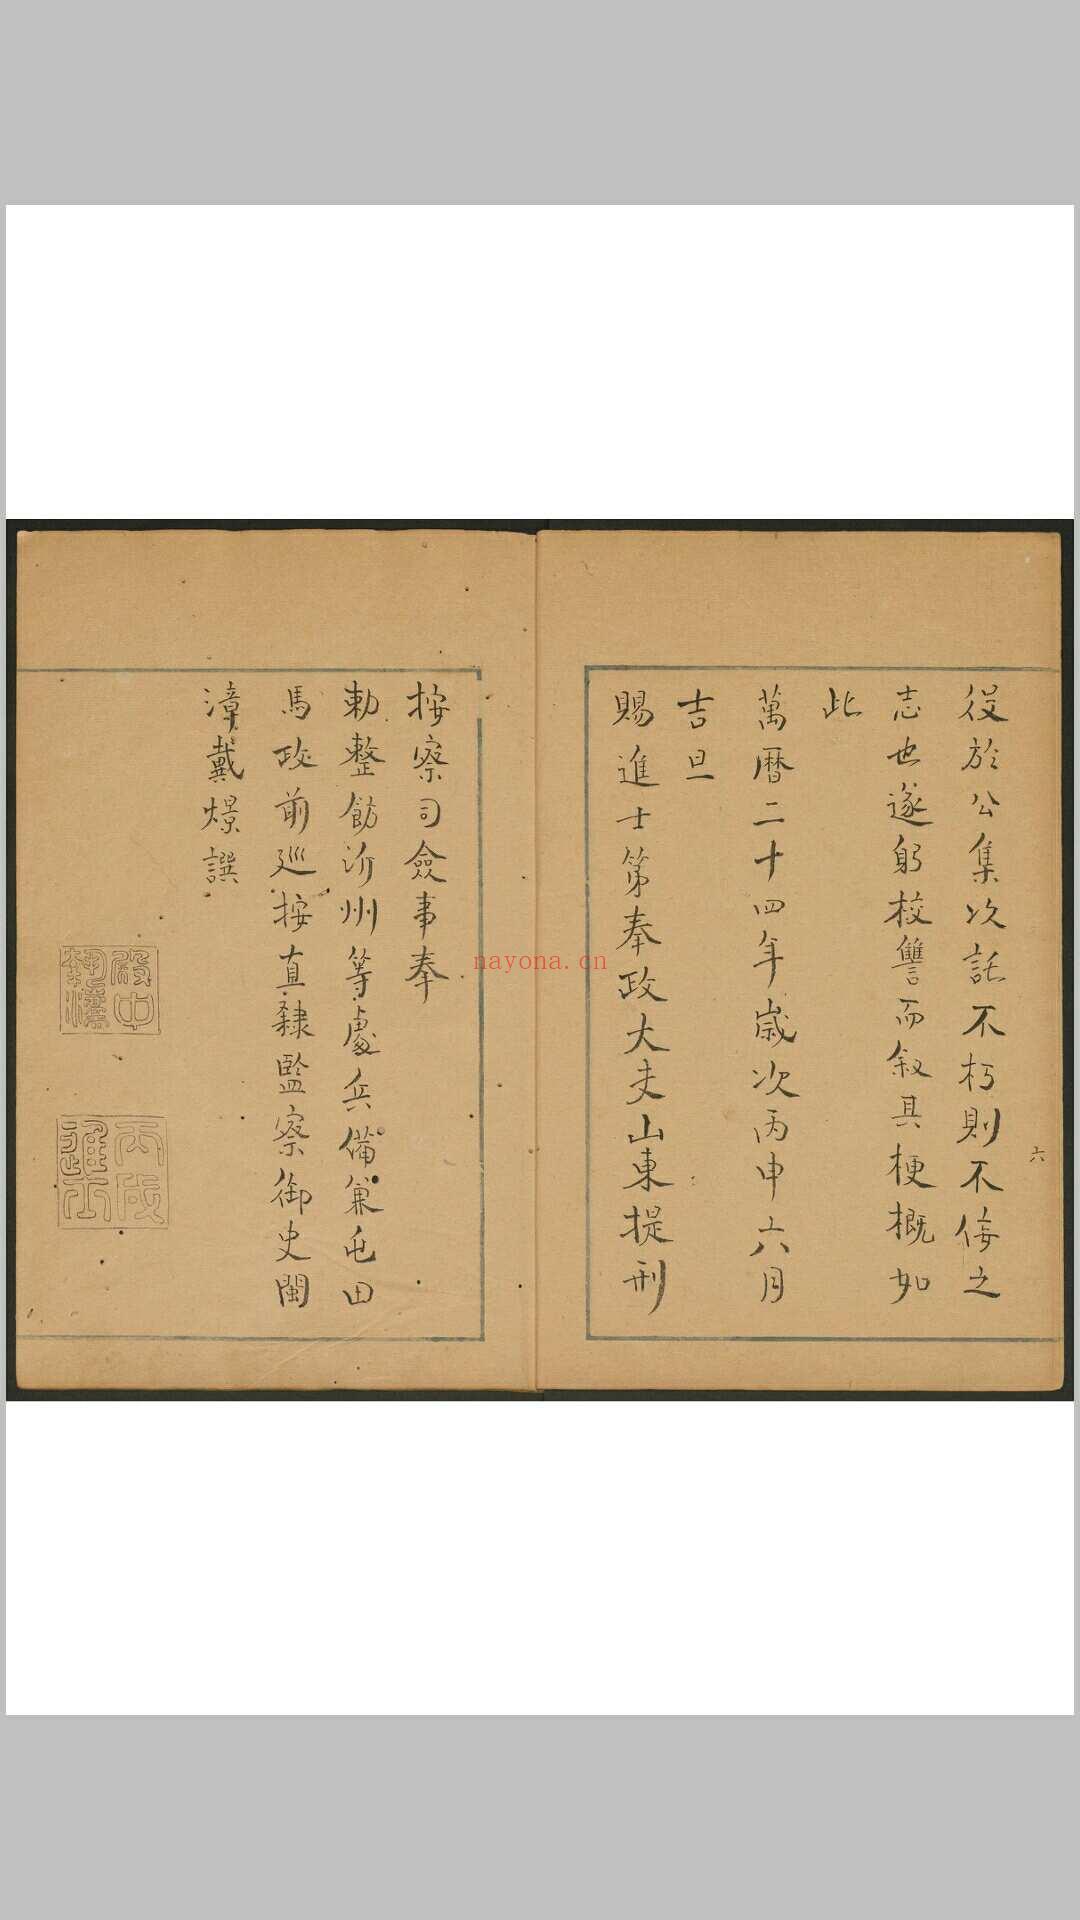 役於公集次託不朽則不佞之
志也遂躬校讐而敘其梗概如
此
萬曆二十四年歲次丙申六月
吉旦
賜進士第奉政大夫山東提刑
六
按察司僉事奉
勅整飭沂州等處兵備兼屯田
馬政前巡按直隸監察御史閩
漳戴燝譔
殿中執灋
丙戌進士
nayona.cn